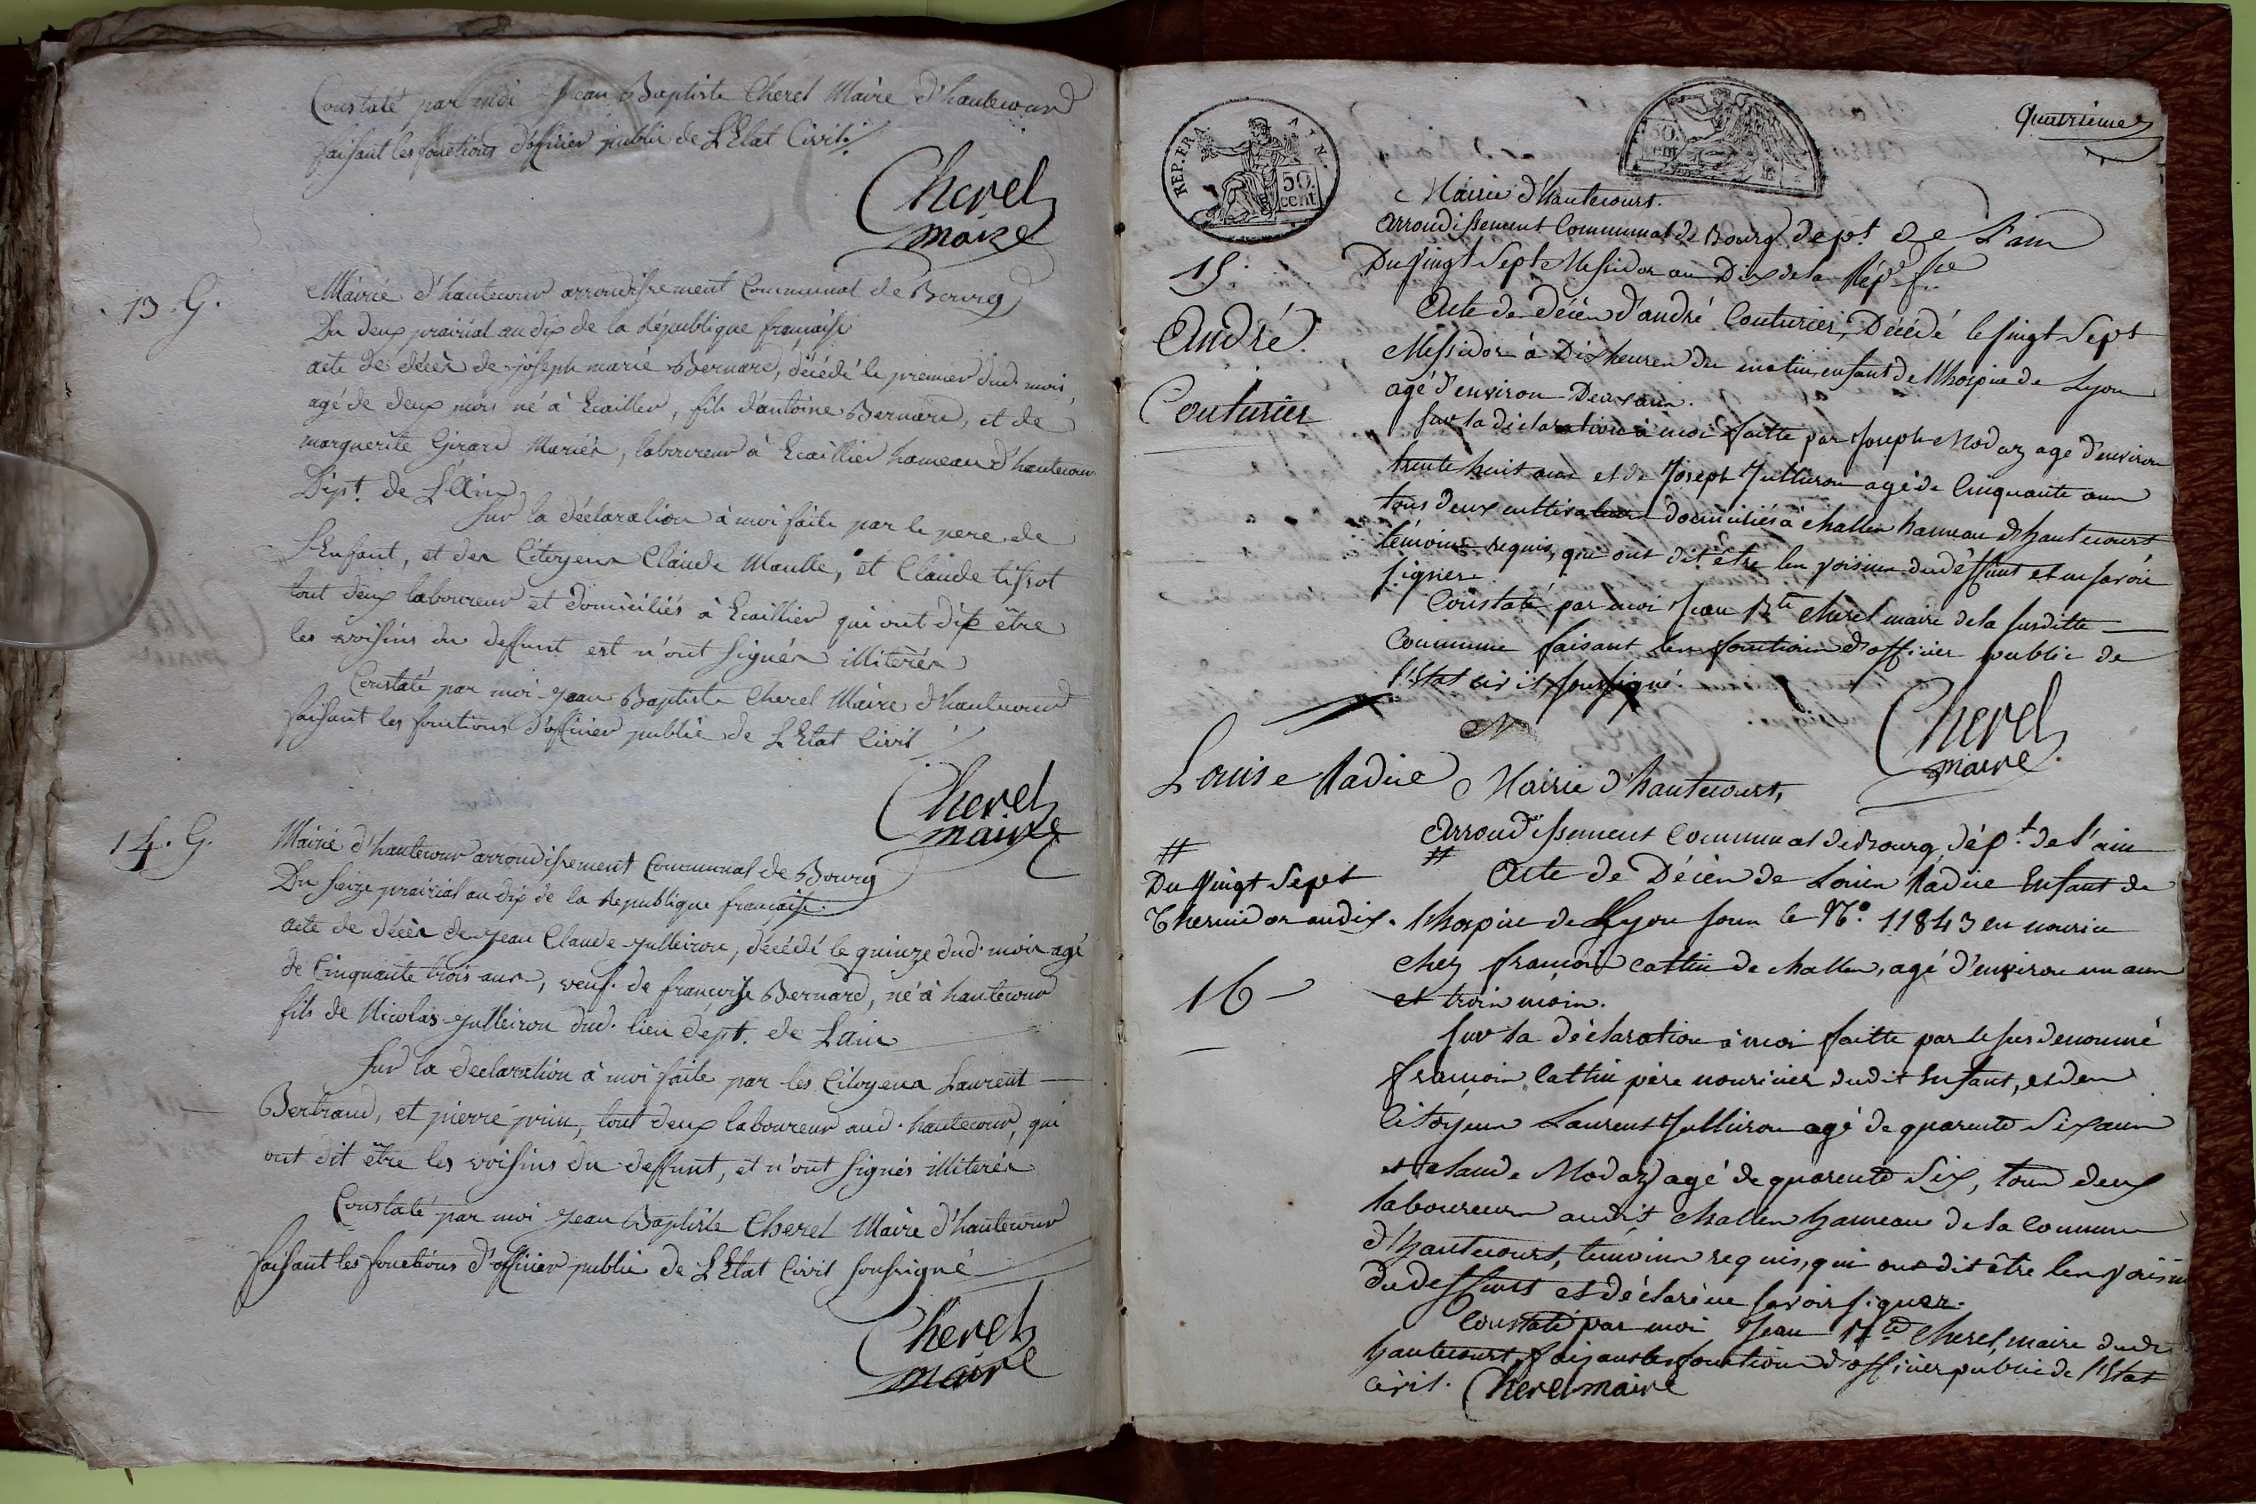 Constaté par moi Jean Baptiste Cherel Maire d'hautecour
faisant les fonctions d'officier public de L'Etat Civil
Cherel
maire
13. G.
Mairie d'hautecour arrondissement Communal de Bourg
Du deux prairial an dix de la République française
acte de décès de joseph marie Bernard, décédé le premier dud. mois,
agé de deux mois né à Ecaillier, fils d'antoine Bernard, et de
marguerite Girard Mariés, laboureur à Ecaillier hameau d'hautecour
Dépt. de L'Ain
Sur la déclaration à moi faite par le pere de
L'Enfant, et des Citoyens Claude Maulle, et Claude tissot
tout deux laboureur et domiciliés à Ecaillier qui ont dit être
les voisins du deffunt est n'ont signés illiterés
Constaté par moi Jean Baptiste Cherel Maire d'hautecour
faisant les fonctions d'officier public de L'Etat Civil
Cherel
maire
14. G.
Mairie d'hautecour arrondissement Communal de Bourg
Du seize prairial an dix de la Republique francaise.
acte de décès de jean Claude julleiron, décédé le quinze dud. mois agé
de Cinquante trois ans, veuf de françoise Bernard, né à hautecour
fils de Nicolas julleiron dud. lieu dépt. de Lain
Sur la declaration à moi faite par les Citoyens Laurent
Bertrand, et pierre prin, tout deux laboureur aud. hautecour, qui
ont dit être les voisins du deffunt, et n'ont signés illiterés
Constaté par moi Jean Baptiste Cherel Maire d'hautecour
faisant les fonctions d'officier public de L'Etat Civil soussigné
Cherel
maire
Quatrième
REP. FRA.
50.
cent
50.
cent
15.
André
Couturier
Mairie d'hautecourt.
Arrondissement Communal de Bourg dept. de L'ain
Du Vingt Sept Messidor an Dix de la Rép. fse
Acte de Décès d'andré Couturier, Décédé le Vingt Sept
Messidor à Dix heures du matin, enfant de l'hospice de Lyon
agé d'environ Deux ans.
Sur la déclaration à moi faitte par Joseph Modaz agé d'environ
trente huit ans et de Joseph Jullieron agé de Cinquante ans
tous deux cultivateurs domiciliés à challes hameau d'hautecourt
témoins requis, qui ont dit être les voisins du déffunt et ne savoir
signer.
Constaté par moi Jean Bte Cherel maire de la susditte
Commune faisant les fonctions d'officier public de
l'Etat civil soussigné.
Cherel
maire
Louise Radice
Mairie d'hautecourt,
Arrondissement Communal de Bourg, dépt. de l'ain
#
Du Vingt Sept
Thermidor an dix.
16
# Acte de Décès de Louis Radice Enfant de
l'hospice de Lyon sous le No. 11843 en nourice
chez françois cattin de challes, agé d'environ un ans
et trois mois.
Sur la déclaration à moi faitte par le sus denommé
françois Cattin père nouricier dudit Enfant, et des
Citoyens Laurent Jullieron agé de quarente Six ans
et claude Modaz agé de quarente Six, tous deux
laboureurs audit challes hameau de la Commune
d'hautecourt, témoins requis, qui ont dit être les voisins
du deffunt et déclaré ne savoir signer.
Constaté par moi Jean Bte Cherel, maire dudt
hautecourt, faisant les fonctions d'officier public de l'Etat
civil. Cherel maire